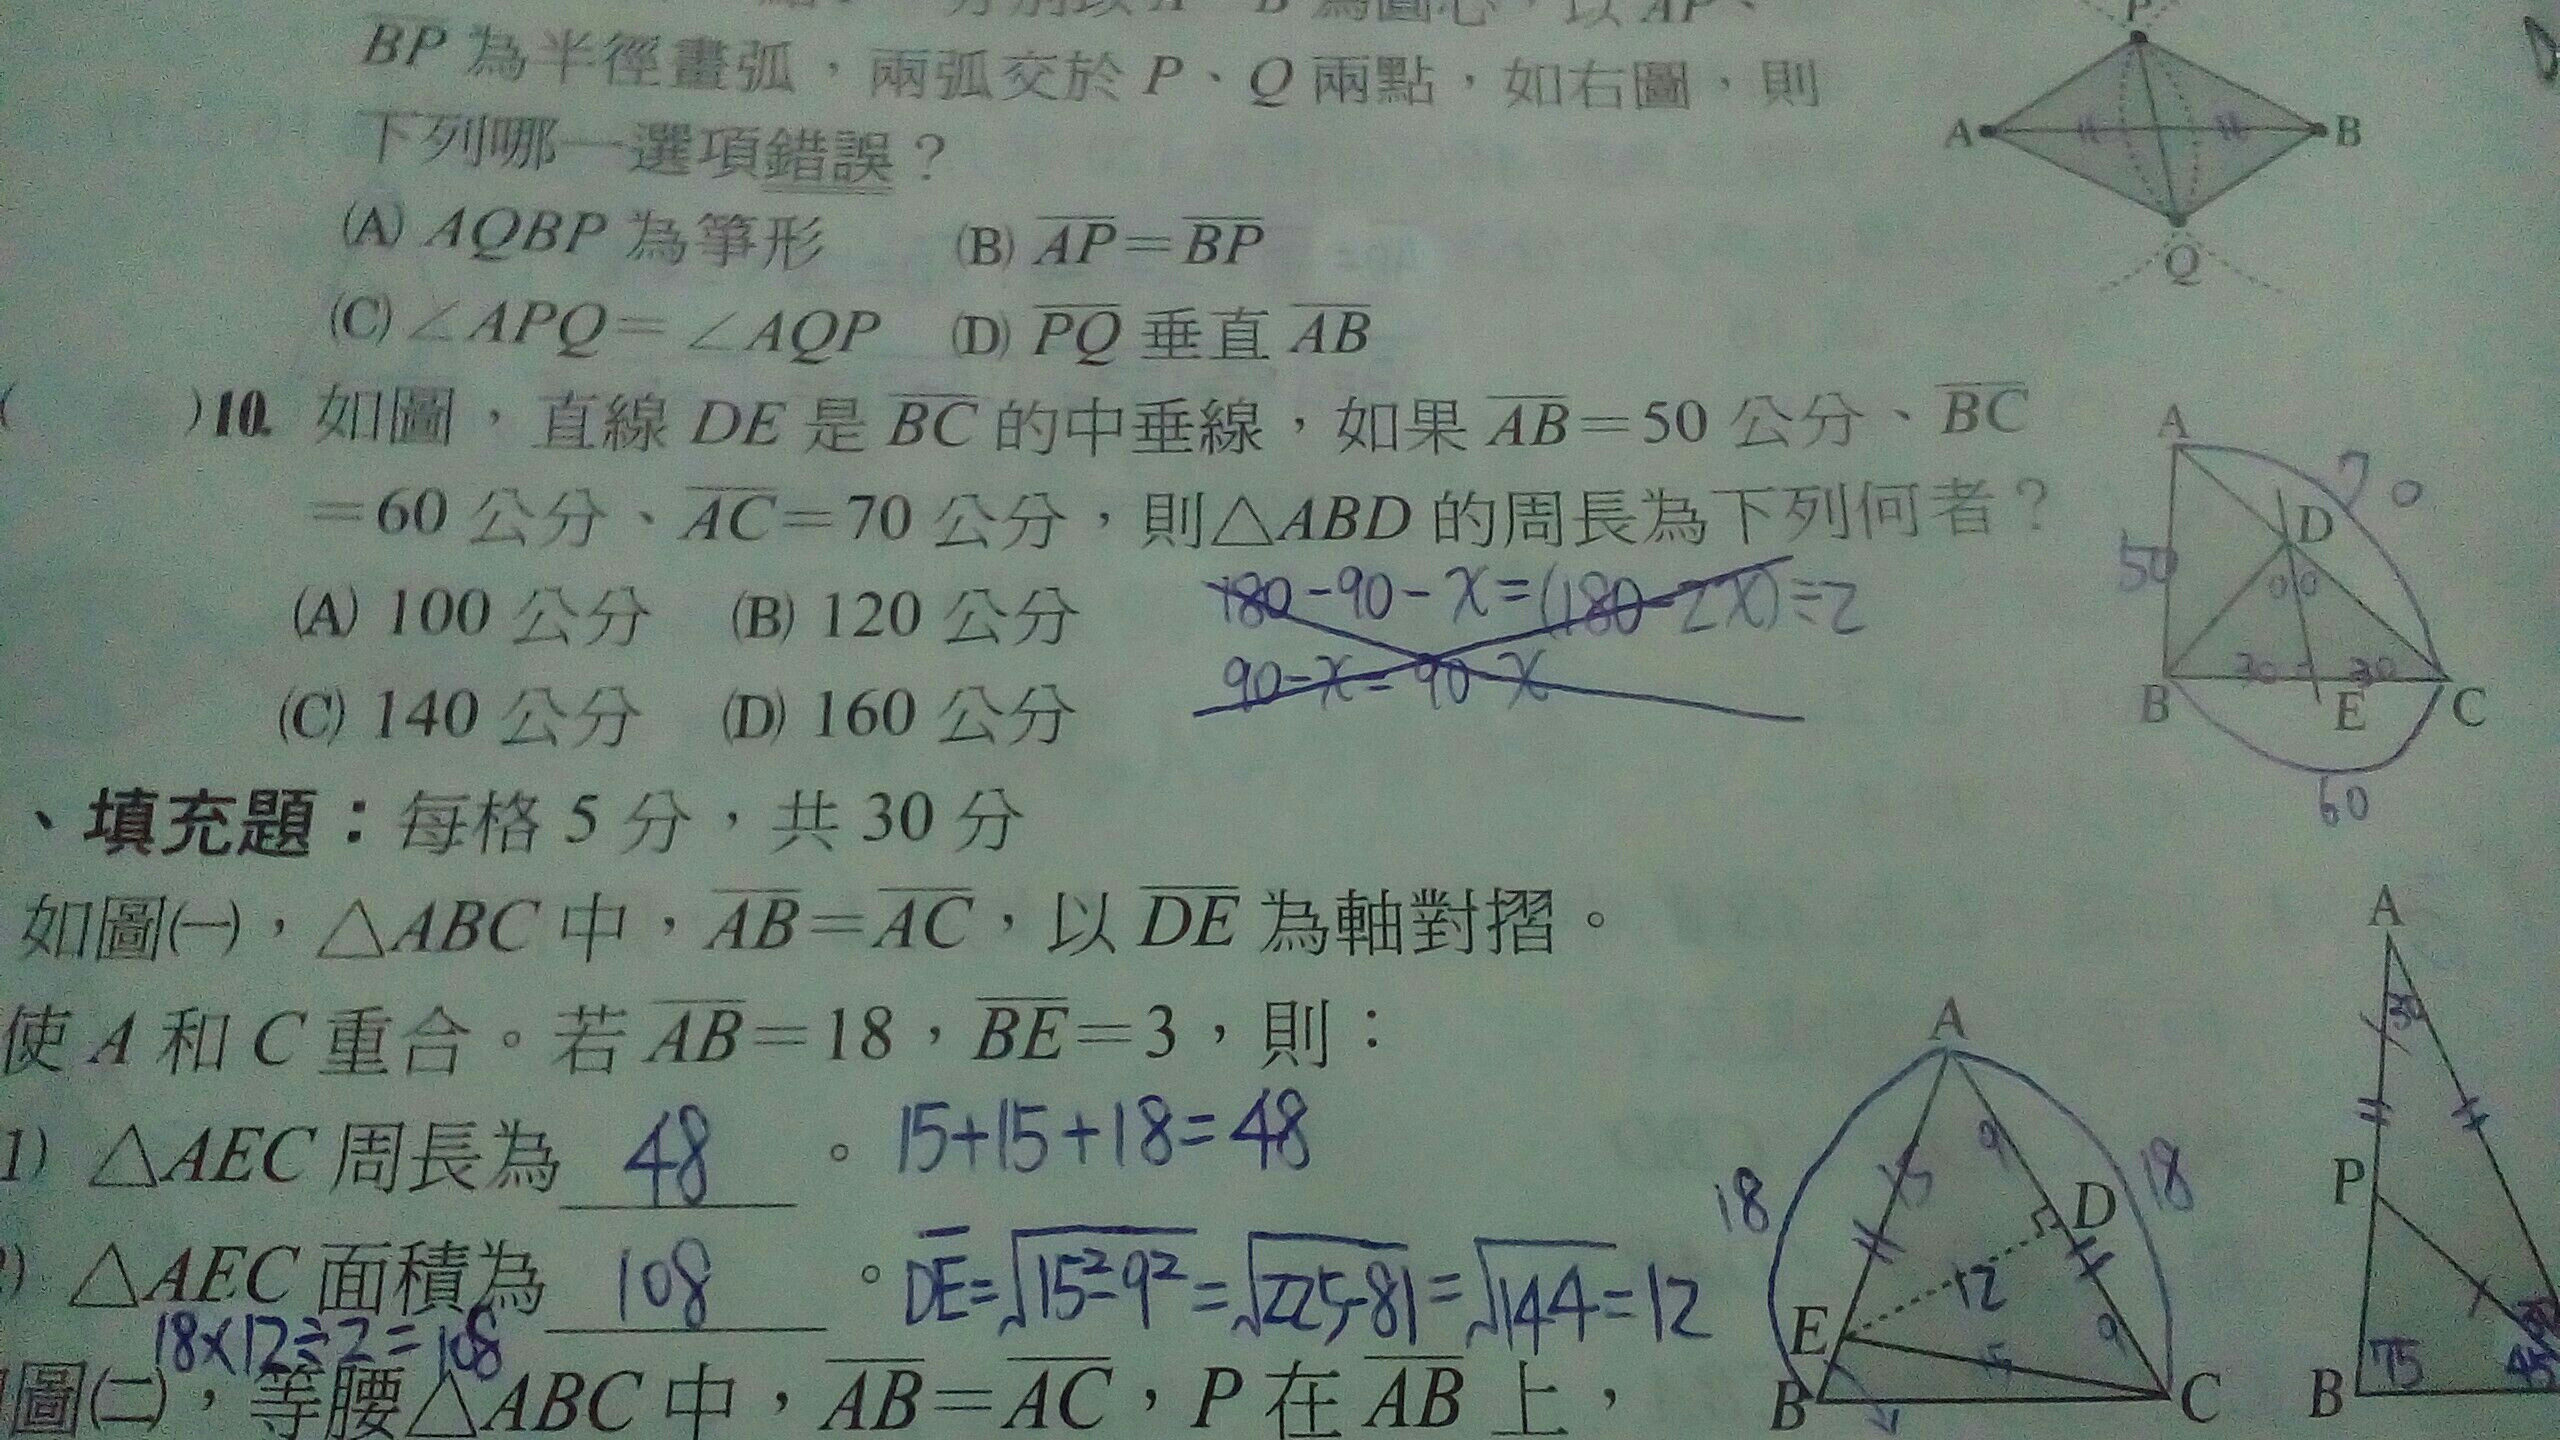 為圓心，以 AP、
BP 為半徑畫弧，兩弧交於 P、Q 兩點，如右圖，則
下列哪一選項錯誤？
(A) AQBP 為箏形 (B) AP=BP
(C) ∠APQ=∠AQP (D) PQ 垂直 AB
P
A
B
Q
( )10. 如圖，直線 DE 是 BC 的中垂線，如果 AB=50 公分、BC
=60 公分、AC=70 公分，則△ABD 的周長為下列何者？
(A) 100 公分 (B) 120 公分
(C) 140 公分 (D) 160 公分
180-90-x=(180-2x)÷2
90-x=90-x
A
70
D
50
30 30
B E C
60
、填充題：每格 5 分，共 30 分
如圖㈠，△ABC 中，AB=AC，以 DE 為軸對摺。
使 A 和 C 重合。若 AB=18，BE=3，則：
1) △AEC 周長為 48 。 15+15+18=48
) △AEC 面積為 108 。 DE=√15²-9²=√225-81=√144=12
18×12÷2=108
圖㈡，等腰△ABC 中，AB=AC，P 在 AB 上，
A
18
15
9
D
18
12
E
9
15
B
C
A
30
P
B
75
45